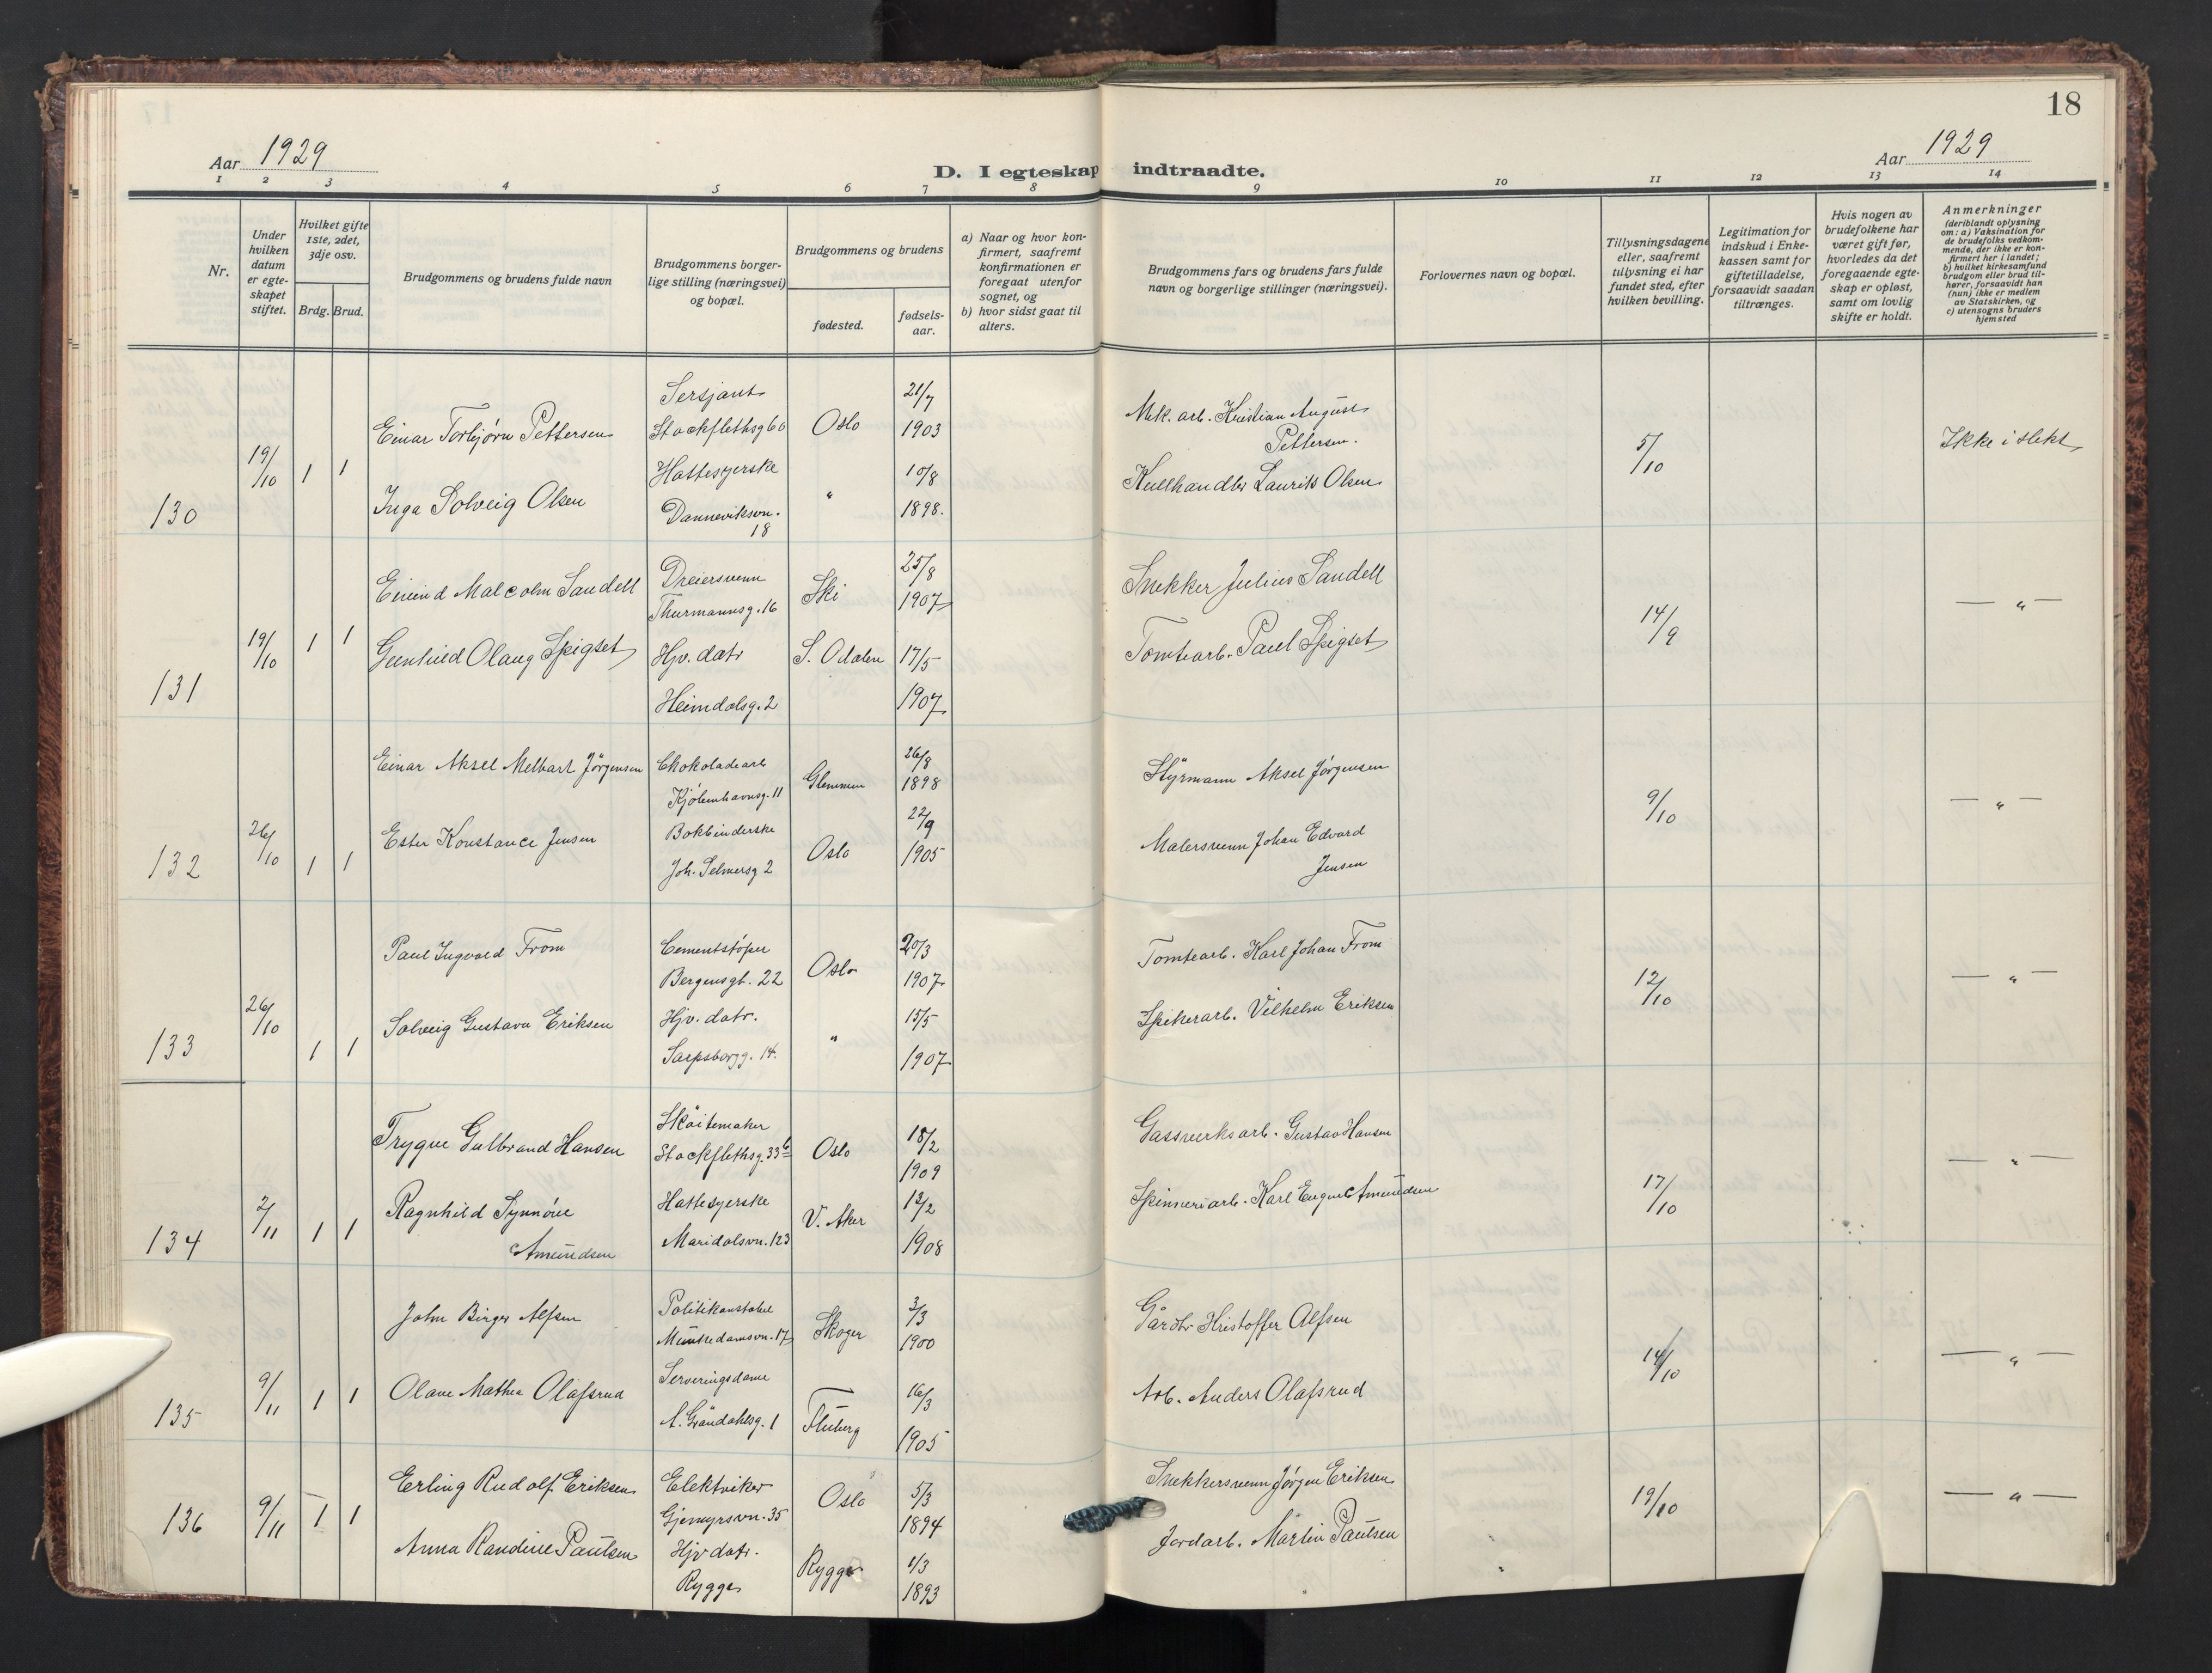 18
Aar 1929
Aar 1929
D. I egteskap indtraadte.
1 2 3 4 5 6 7 8 9 10 11 12 13 14
Nr.
Under hvilken datum er egteskapet stiftet.
Hvilket gifte 1ste, 2det, 3dje osv.
Brdg. Brud.
Brudgommens og brudens fulde navn
Brudgommens borgerlige stilling (næringsvei) og bopæl.
Brudgommens og brudens
fødested.
fødselsaar.
a) Naar og hvor konfirmert, saafremt konfirmationen er foregaat utenfor sognet, og
b) hvor sidst gaat til alters.
Brudgommens fars og brudens fars fulde navn og borgerlige stillinger (næringsvei).
Forlovernes navn og bopæl.
Tillysningsdagene eller, saafremt tillysning ei har fundet sted, efter hvilken bevilling.
Legitimation for indskud i Enkekassen samt for giftetilladelse, forsaavidt saadan tiltrænges.
Hvis nogen av brudefolkene har været gift før, hvorledes da det foregaaende egteskap er opløst, samt om lovlig skifte er holdt.
Anmerkninger
(deriblandt oplysning om: a) Vaksination for de brudefolks vedkommende, der ikke er konfirmert her i landet; b) hvilket kirkesamfund brudgom eller brud tilhører, forsaavidt han (hun) ikke er medlem av Statskirken, og c) utensogns bruders hjemsted
130
19/10 1 1
Einar Torbjørn Pettersen
Sersjant
Stockflethsg 60
Oslo
21/7
1903
Mek. arb. Kristian August
Pettersen.
5/10
Ikke i slekt
Inga Solveig Olsen
Hattesyerske
Danneviksvn.
18
"
10/8
1898.
Kullhandler Laurits Olsen
131
19/10 1 1
Eivind Malcolm Sandell
Dreiersvenn
Thurmannsg. 16
Ski
25/8
1907
Snekker Julius Sandell
14/9
— " —
Gunhild Olaug Spigset
Hjv. datr
Heimdalsg. 2
S. Odalen
17/5
1907
Tomtearb. Paul Spigset
132
26/10 1 1
Einar Aksel Melbart Jørgensen
Chokoladearb
Kjøbenhavnsg. 11
Glemmen
26/8
1898
Styrmann Aksel Jørgensen
9/10
— " —
Ester Konstance Jensen
Bokbinderske
Joh. Selmersg 2
Oslo
22/9
1905
Malersvenn Johan Edvard
Jensen
133
26/10 1 1
Paul Ingvald From
Cementstøper
Bergensgt. 22
Oslo
20/3
1907
Tomtearb. Karl Johan From
12/10
— " —
Solveig Gustava Eriksen
Hjv. datr.
Sarpsborgg. 14.
"
15/5
1907
Spikerarb. Vilhelm Eriksen
134
2/11 1 1
Trygve Gulbrand Hansen
Skøitemaker
Stockflethsg. 33 b
Oslo
18/2
1909
Gassverksarb. Gustav Hansen
17/10
— " —
Ragnhild Synnøve
Amundsen
Hattesyerske
Maridalsvn. 123
V. Aker
12/2
1908
Spinneriarb. Karl Eugen Amundsen
135
9/11 1 1
John Birger Alfsen
Politikonstabel
Munkedamsvn. 17
Skoger
3/3
1900
Gårdbr Kristoffer Alfsen
14/10
— " —
Olave Mathea Olafsrud
Serveringsdame
A. Grøndahlsg. 1
Fluberg
16/3
1905
Arb. Anders Olafsrud
136
9/11 1 1
Erling Rudolf Eriksen
Elektriker
Gjemyrsvn. 35
Oslo
5/3
1894
Snekkersvenn Jørgen Eriksen
19/10
— " —
Anna Randine Paulsen
Hjv datr.
Rygge
Rygge
1/3
1893
Jordarb. Martin Paulsen